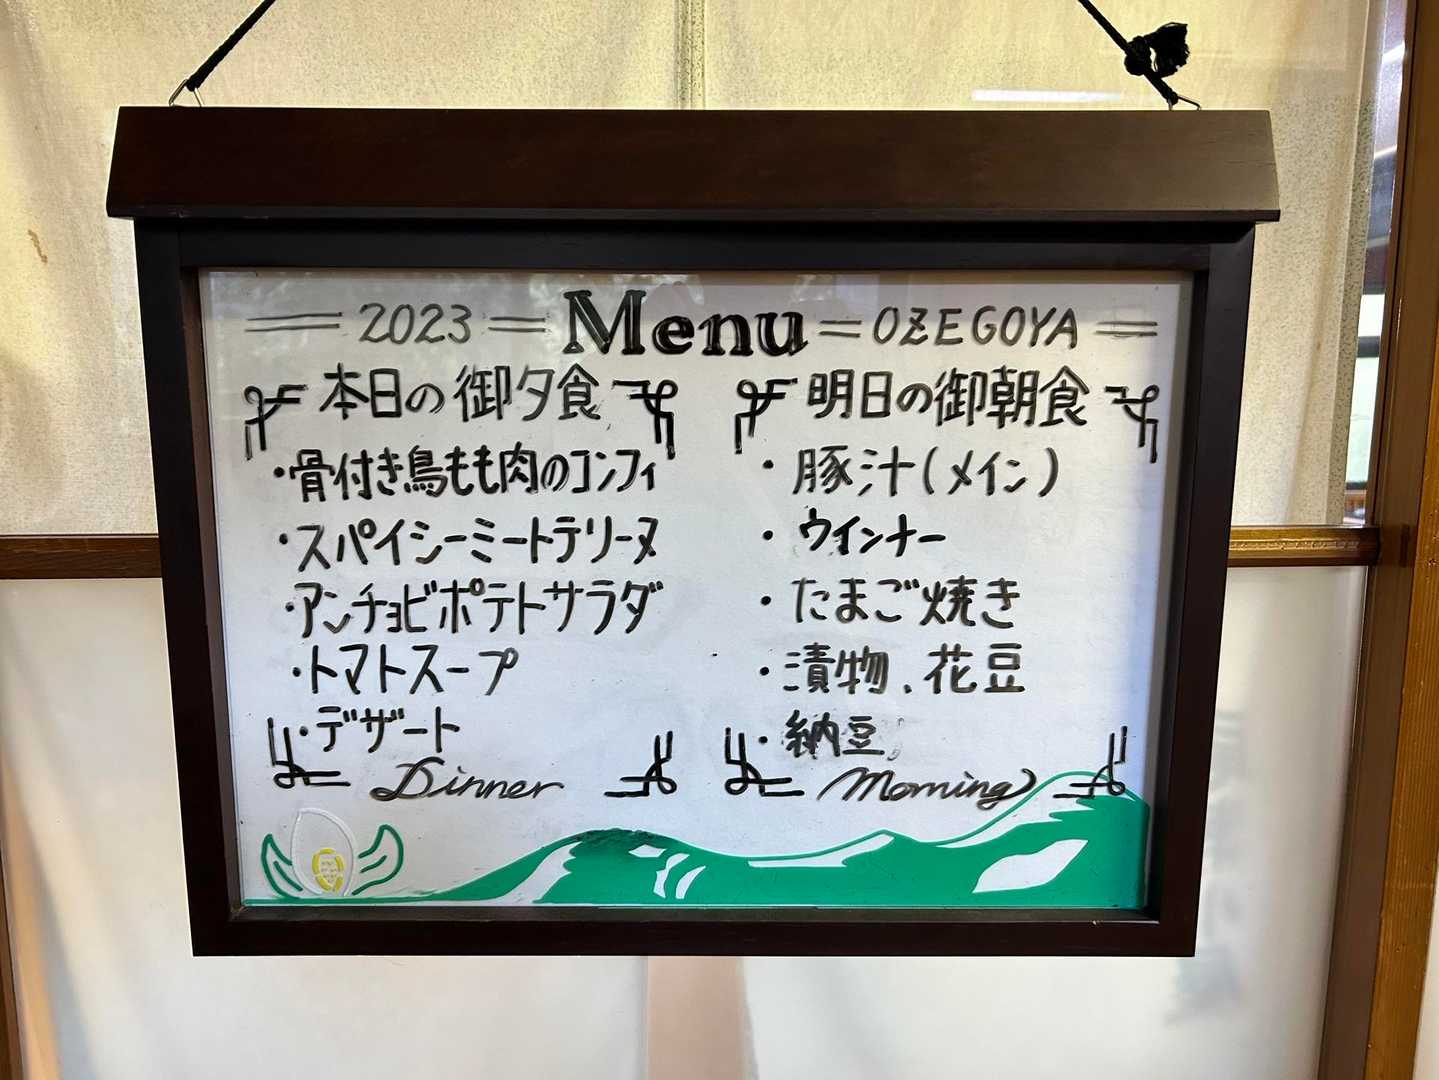 2023 Menu OZEGOYA
本日の御夕食
・骨付き鳥もも肉のコンフィ
・スパイシーミートテリーヌ
・アンチョビポテトサラダ
・トマトスープ
・デザート
Dinner
明日の御朝食
・豚汁(メイン)
・ウインナー
・たまご焼き
・漬物、花豆
・納豆
Morning